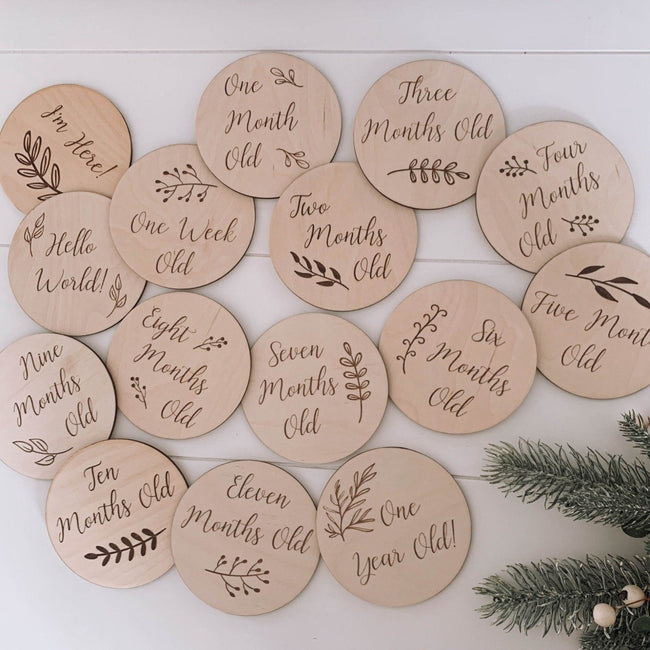 I'm Here!
Hello
World!
One Week
Old
One
Month
Old
Two
Months
Old
Three
Months Old
Four
Months
Old
Five Mont
Old
Six
Months
Old
Seven
Months
Old
Eight
Months
Old
Nine
Months
Old
Ten
Months Old
Eleven
Months Old
One
Year Old!